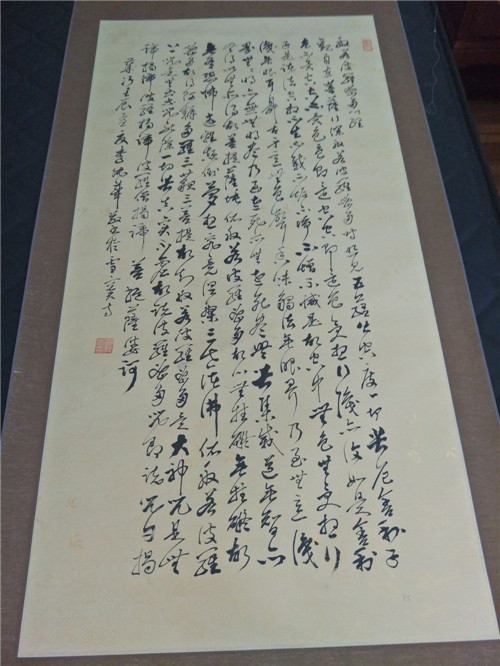 般若波羅蜜多心經
觀自在菩薩行深般若波羅蜜多時照見五蘊皆空度一切苦厄舍利子
色不異空空不異色色即是空空即是色受想行識亦復如是舍利
子是諸法空相不生不滅不垢不淨不增不減是故空中無色無受想行
識無眼耳鼻舌身意無色聲香味觸法無眼界乃至無意識
界無無明亦無無明盡乃至無老死亦無老死盡無苦集滅道無智亦
無得以無所得故菩提薩埵依般若波羅蜜多故心無罣礙無罣礙故
無有恐怖遠離顛倒夢想究竟涅槃三世諸佛依般若波羅
蜜多故得阿耨多羅三藐三菩提故知般若波羅蜜多是大神咒是無
上咒是無等等咒能除一切苦真實不虛故說波羅蜜多咒即說咒曰揭
諦揭諦波羅揭諦波羅僧揭諦菩提薩婆訶
壬辰立夏李